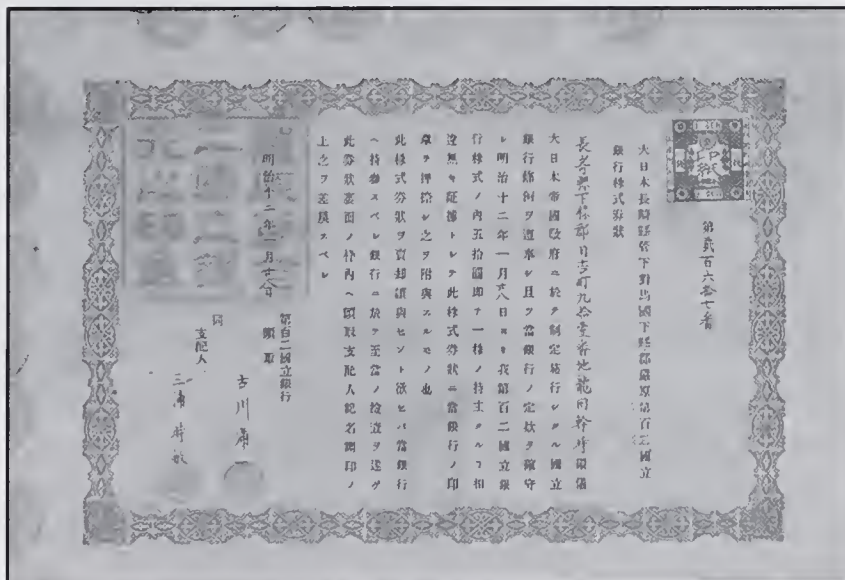 第貳百六拾七番
大日本長崎縣管下對馬國下縣郡嚴原第百二國立
銀行株式券狀
長崎縣下縣郡日吉町九拾壹番地 幹時 殿儀
大日本帝國政府ニ於テ制定施行シタル國立
銀行條例ヲ遵奉シ且ツ當銀行ノ定款ヲ確守
シ明治十二年一月廿八日ヨリ我第百二國立銀
行株式ノ內五拾圓卽チ一株ノ持主タルヿ相
違無キ証據トシテ此株式券狀ニ當銀行ノ印
章ヲ押捺シ之ヲ附與スルモノ也
此株式券狀ヲ賣却讓與セント欲セバ當銀行
ヘ持參スベシ銀行ニ於テ至當ノ檢査ヲ遂ゲ
此券狀裏面ノ枠內ヘ頭取支配人記名調印ノ
上之ヲ差戾スベシ
明治十二年一月廿八日
第百二國立銀行
頭取
古川 一
同
支配人
三浦 敏